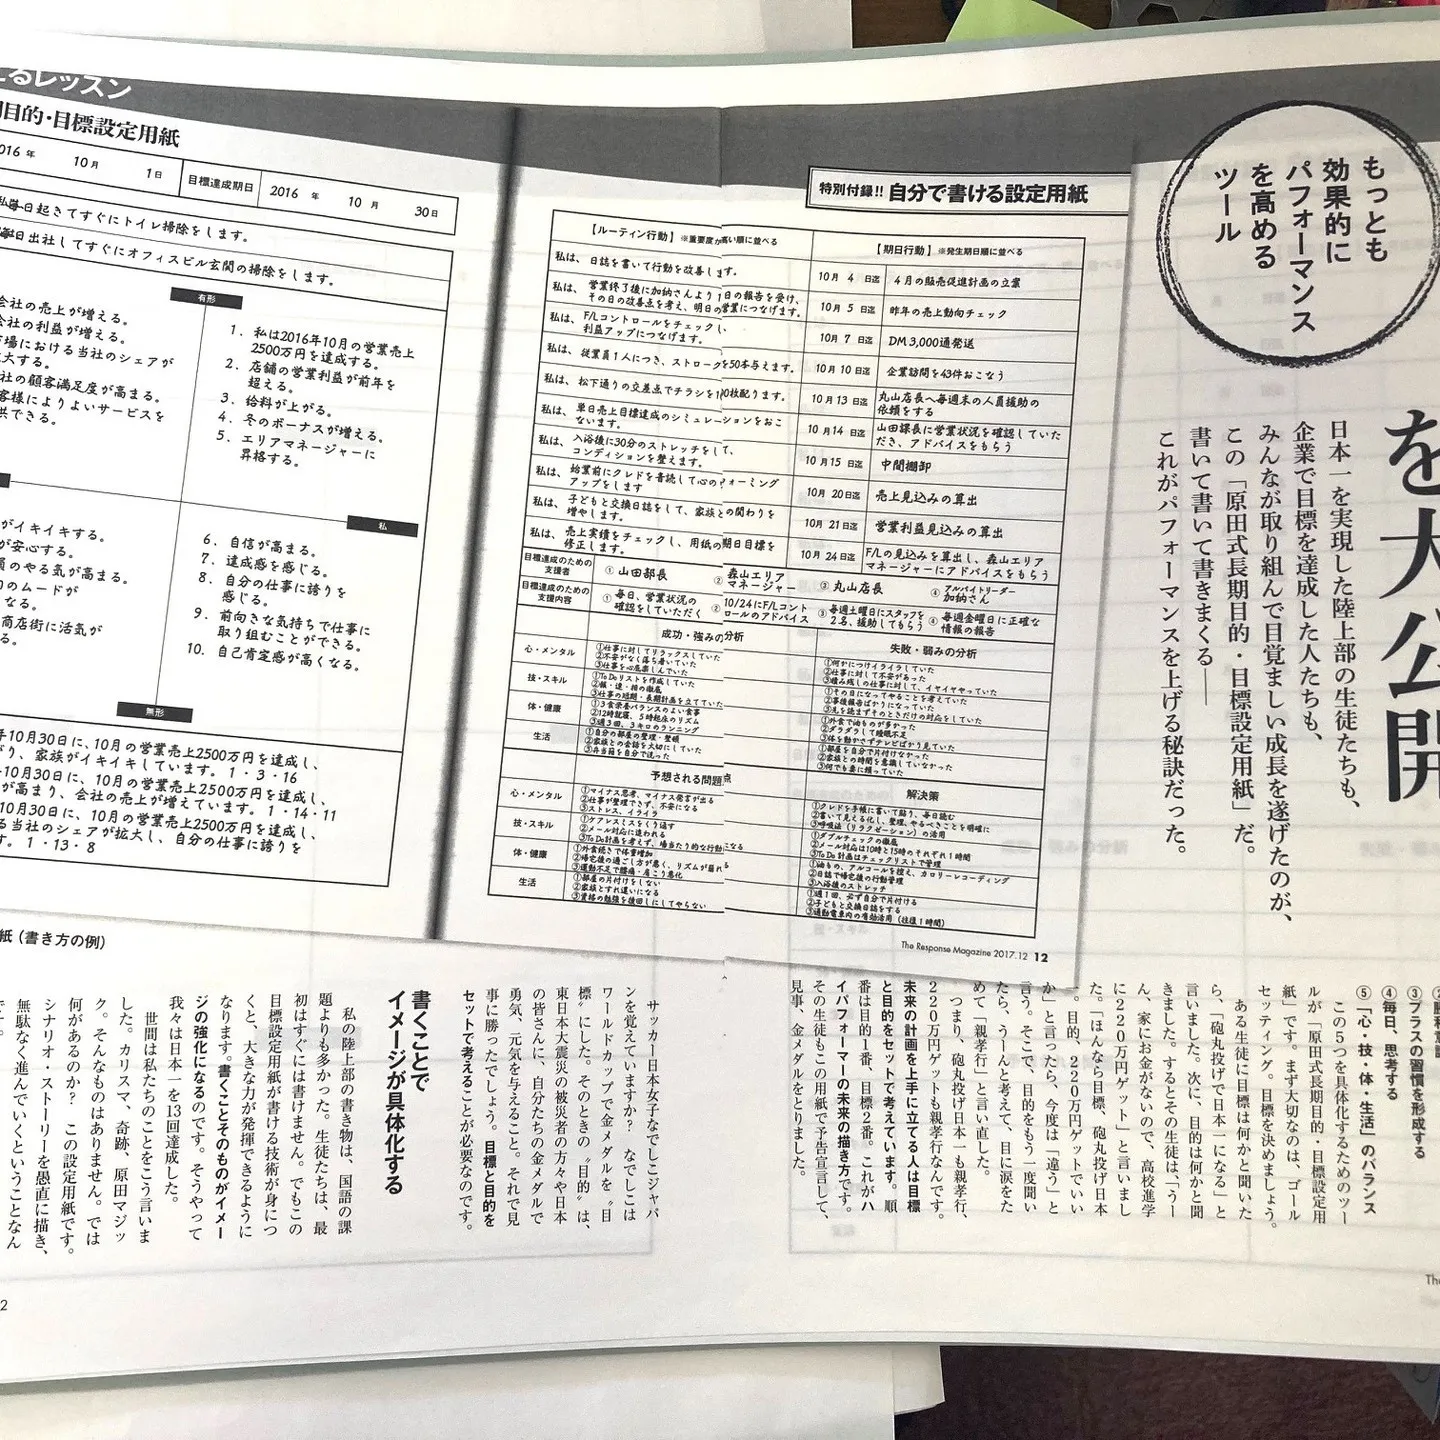 もっとも
効果的に
パフォーマンス
を高める
ツール
を大公開
日本一を実現した陸上部の生徒たちも、
企業で目標を達成した人たちも、
みんなが取り組んで目覚ましい成長を遂げたのが、
この「原田式長期目的・目標設定用紙」だ。
書いて書いて書きまくる——
これがパフォーマンスを上げる秘訣だった。
るレッスン
目的・目標設定用紙
016 年 10月 1日 目標達成期日 2016 年 10 月 30日
毎日起きてすぐにトイレ掃除をします。
毎日出社してすぐにオフィスビル玄関の掃除をします。
有形
会社の売上が増える。
会社の利益が増える。
場における当社のシェアが
大する。
社の顧客満足度が高まる。
客様によりよいサービスを
供できる。
1. 私は2016年10月の営業売上
2500万円を達成する。
2. 店舗の営業利益が前年を
超える。
3. 給料が上がる。
4. 冬のボーナスが増える。
5. エリアマネージャーに
昇格する。
私
がイキイキする。
が安心する。
のやる気が高まる。
のムードが
なる。
商店街に活気が
る。
6. 自信が高まる。
7. 達成感を感じる。
8. 自分の仕事に誇りを
感じる。
9. 前向きな気持ちで仕事に
取り組むことができる。
10. 自己肯定感が高くなる。
無形
年10月30日に、10月の営業売上2500万円を達成し、
り、家族がイキイキしています。1・3・16
10月30日に、10月の営業売上2500万円を達成し、
が高まり、会社の売上が増えています。1・14・11
10月30日に、10月の営業売上2500万円を達成し、
る当社のシェアが拡大し、自分の仕事に誇りを
す。1・13・8
紙（書き方の例）
特別付録!! 自分で書ける設定用紙
【ルーティン行動】※重要度が高い順に並べる
私は、日誌を書いて行動を改善します。
私は、営業終了後に加納さんより1日の報告を受け、
その日の改善点を考え、明日の営業につなげます。
私は、F/Lコントロールをチェックし、
利益アップにつなげます。
私は、従業員1人につき、ストローク50本与えます。
私は、松下通りの交差点でチラシを 枚配ります。
私は、単日売上目標達成のシミュレーションをおこ
ないます。
私は、入浴後に30分のストレッチをして、
コンディションを整えます。
私は、始業前にクレドを音読して心の ォーミング
アップをします
私は、子どもと交換日誌をして、家族との関わりを
増やします。
私は、売上実績をチェックし、用紙の期日目標を
修正します。
【期日行動】※発生期日順に並べる
10月 4 日迄 4月の販売促進計画の立案
10月 5 日迄 昨年の売上動向チェック
10月 7 日迄 DM3,000通発送
10月 10日迄 企業訪問を43件おこなう
10月 13日迄 丸山店長へ毎週末の人員援助の
依頼をする
10月14 日迄 山田課長に営業状況を確認していた
だき、アドバイスをもらう
10月 15 日迄 中間棚卸
10月 20日迄 売上見込みの算出
10月 21日迄 営業利益見込みの算出
10月 24日迄 F/Lの見込みを算出し、森山エリア
マネージャーにアドバイスをもらう
目標達成のための
支援者
①山田部長 ②森山エリア
マネージャー ③丸山店長 ④アルバイトリーダー
加納さん
目標達成のための
支援内容
①毎日、営業状況の
確認をしていただく
②10/24にF/Lコント
ロールのアドバイス
③毎週土曜日にスタッフを
2名、援助してもらう
④毎週金曜日に正確な
情報の報告
成功・強みの分析
心・メンタル
①仕事に対してリラックスしていた
②不安がなく落ち着いていた
③仕事を心底楽しんでいた
技・スキル
①To Doリストを作成していた
②報・連・相の徹底
③仕事の短期・長期計画を立てていた
体・健康
①3食栄養バランスのよい食事
②12時就寝、5時起床のリズム
③週3回、3キロのランニング
生活
①自分の部屋の整理・整頓
②家族との会話を大切にしていた
③弁当箱を自分で洗った
失敗・弱みの分析
①何かにつけイライラしていた
②仕事に対して不安があった
③積み残しの仕事に対して、イヤイヤやっていた
①その日になってやることを考えていた
②事後報告ばかりになっていた
③先を読まずそのときだけの対応をしていた
①外食で油ものが多かった
②ダラダラして睡眠不足
③体を動かさずテレビばかり見ていた
①部屋を自分で片付けなかった
②家族との時間を意識していなかった
③何でも妻に頼っていた
予想される問題点
心・メンタル
①マイナス思考、マイナス発言が出る
②仕事が整理できず、不安になる
③ストレス、イライラ
技・スキル
①ケアレスミスをくり返す
②メール対応に追われる
③To Do計画を考えず、場当たり的な行動になる
体・健康
①外食続きで体重増加
②帰宅後の過ごし方が悪く、リズムが崩れ
③運動不足で腰痛・肩こり悪化
生活
①部屋の片付けをしない
②家族とすれ違いになる
③資格の勉強を後回しにしてやらない
解決策
①クレドを手帳に書いて貼り、毎日読む
②書いて見える化し、整理、やるべきことを明確に
③呼吸法（リラクゼーション）の活用
①ダブルチェックの徹底
②メール対応は10時と15時のそれぞれ1時間
③To Do計画はチェックリストで管理
①油もの、アルコールを控え、カロリーレコーディング
②日誌で帰宅後の行動管理
③入浴後のストレッチ
①週1回、必ず自分で片付ける
②子どもと交換日誌をする
③通勤電車内の有効活用（往復1時間）
The Response Magazine 2017.12 12
③プラスの習慣を形成する
④毎日、思考する
⑤「心・技・体・生活」のバランス
この5つを具体化するためのツー
ルが「原田式長期目的・目標設定用
紙」です。まず大切なのは、ゴール
セッティング。目標を決めましょう。
ある生徒に目標は何かと聞いた
ら、「砲丸投げで日本一になる」と
言いました。次に、目的は何かと聞
きました。するとその生徒は、「うー
ん、家にお金がないので、高校進学
に220万円ゲット」と言いまし
た。「ほんなら目標、砲丸投げ日本
一。目的、220万円ゲットでいい
か」と言ったら、今度は「違う」と
言う。そこで、目的をもう一度聞い
たら、うーんと考えて、目に涙をた
めて「親孝行」と言い直した。
つまり、砲丸投げ日本一も親孝行、
220万円ゲットも親孝行なんです。
未来の計画を上手に立てる人は目標
と目的をセットで考えています。順
番は目的1番、目標2番。これがハ
イパフォーマーの未来の描き方です。
その生徒もこの用紙で予告宣言して、
見事、金メダルをとりました。
サッカー日本女子なでしこジャパ
ンを覚えていますか？ なでしこは
ワールドカップで金メダルを〝目
標〟にした。そのときの〝目的〟は、
東日本大震災の被災者の方々や日本
の皆さんに、自分たちの金メダルで
勇気、元気を与えること。それで見
事に勝ったでしょう。目標と目的を
セットで考えることが必要なのです。
書くことで
イメージが具体化する
私の陸上部の書き物は、国語の課
題よりも多かった。生徒たちは、最
初はすぐには書けません。でもこの
目標設定用紙が書ける技術が身につ
くと、大きな力が発揮できるように
なります。書くことそのものがイメー
ジの強化になるのです。そうやって
我々は日本一を13回達成した。
世間は私たちのことをこう言いま
した。カリスマ、奇跡、原田マジッ
ク。そんなものはありません。では
何があるのか？ この設定用紙です。
シナリオ・ストーリーを愚直に描き、
無駄なく進んでいくということなん
です。
2